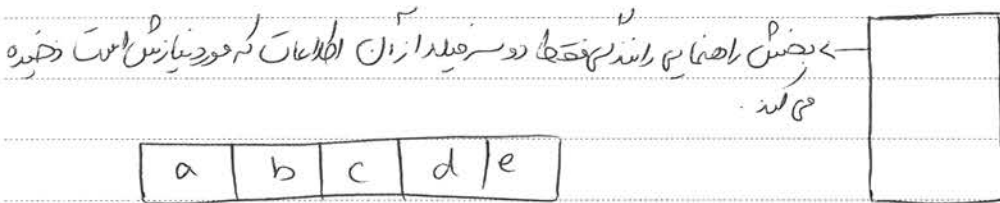 بخش راهنمایی رانندگی فقط دو سه فیلد از آن اطلاعات که مورد نیازش است ذخیره
می کند.
a b c d e